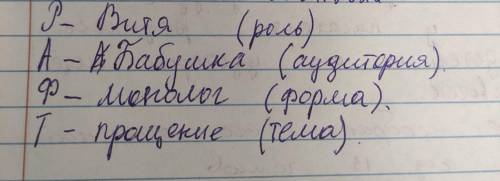 Р- Витя (роль)
А - Бабушка (аудитория).
Ф - монолог (форма).
Т - прощение (тема).